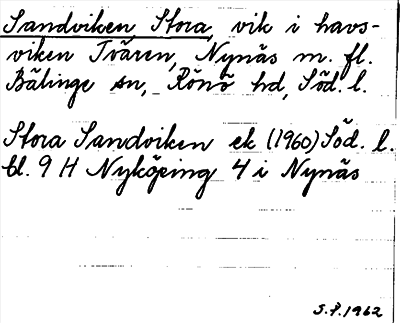 Sandviken, Stora, vik i havs-
viken Tvären, Nynäs m. fl.
Bälinge sn, Rönö hd, Söd. l.
Stora Sandviken ek (1960) Söd. l.
bl. 9 H Nyköping 4 i Nynäs
S.P. 1962